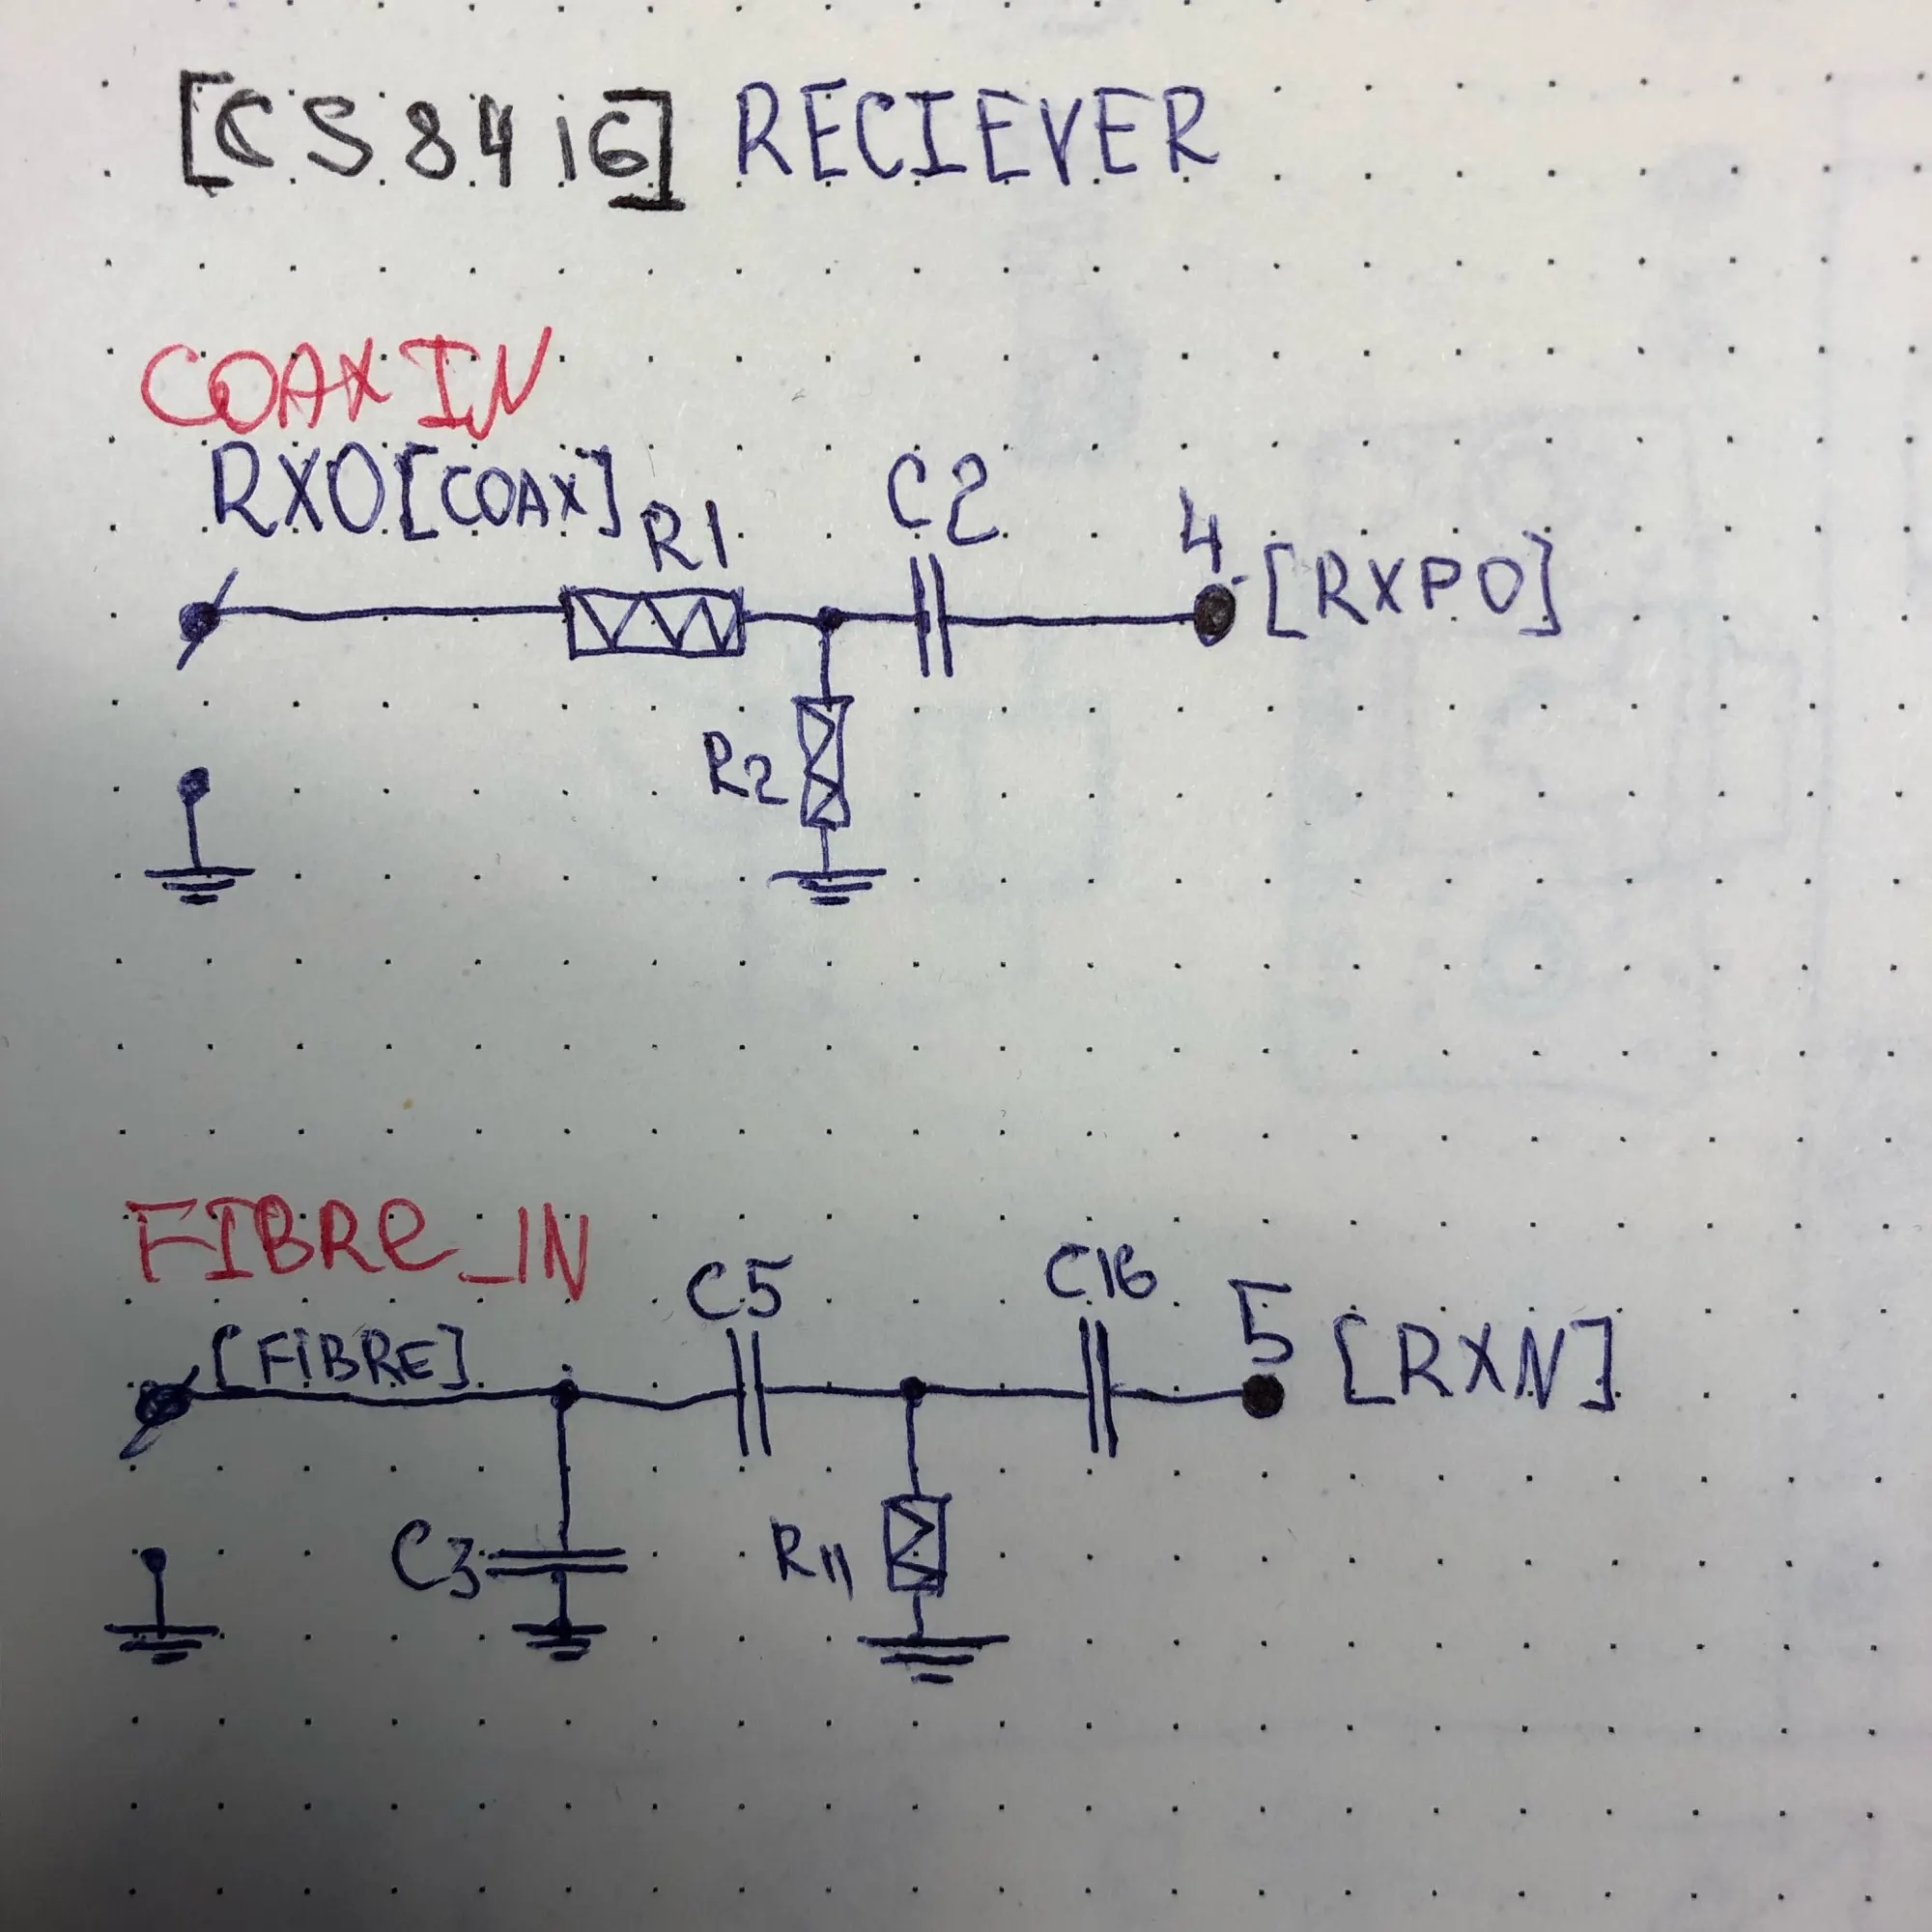 [CS8416] RECIEVER
COAX IN
RX0[COAX]
R1
C2
4
[RXP0]
R2
FIBRe_IN
[FiBRE]
C5
C16
5
[RXN]
C3
R11